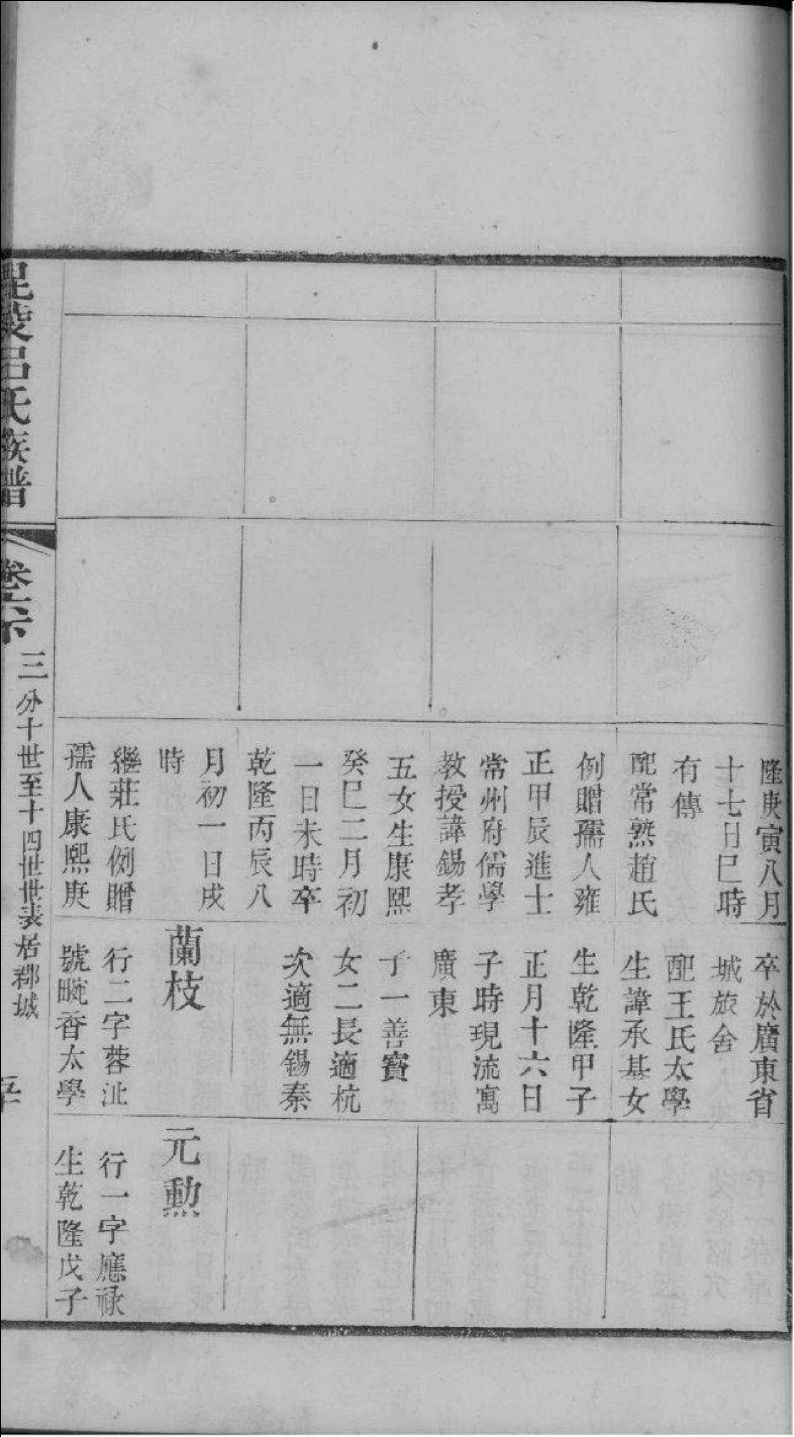 隆庚寅八月
十七日巳時
有傳
配常熟趙氏
例贈孺人雍
正甲辰進士
常州府儒學
教授諱錫孝
五女生康熙
癸巳二月初
一日未時卒
乾隆丙辰八
月初一日戌
時
繼莊氏例贈
孺人康熙庚
卒於廣東省
城旅舍
配王氏太學
生諱承基女
生乾隆甲子
正月十六日
子時現流寓
廣東
子一善寶
女二長適杭
次適無錫秦
蘭枝
行二字蓉沚
號畹香太學
元勳
行一字應祿
生乾隆戊子
毘陵呂氏族譜
卷六下
三分十世至十四世世表居郡城